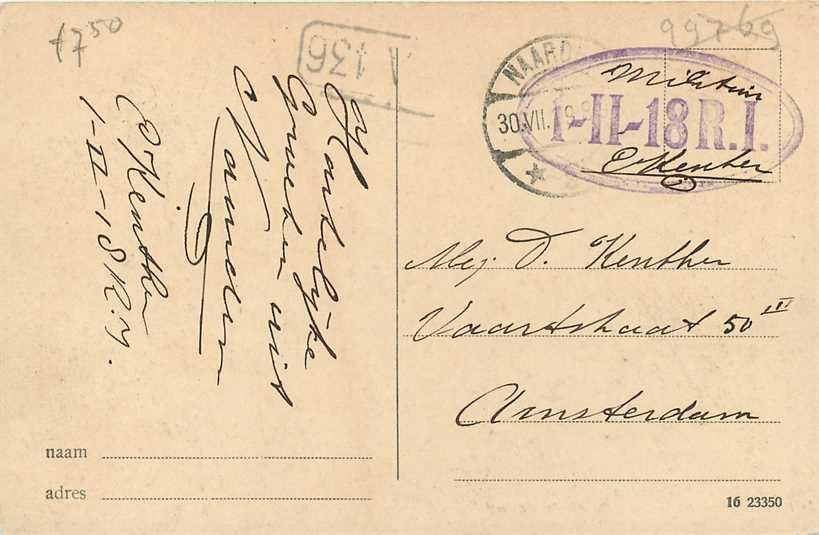 17⁵⁰
V 136
Hartelijke
Groeten uit
Naarden
E Kenther
1-II-18 R.I.
99769
NAARD
30.VII.
Militair
I-II-18 R.I.
E Kenther
Mej. D. Kenther
Vaartstraat 50 III
Amsterdam
naam
adres
16 23350